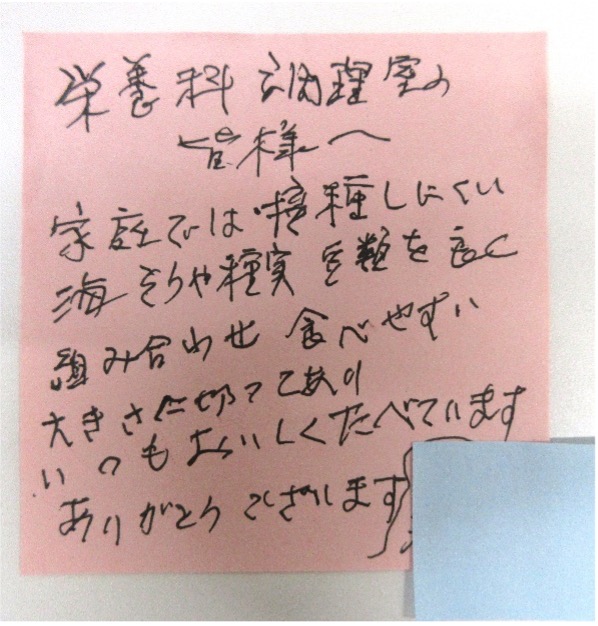 栄養科調理室の
皆様へ
家庭では接種しにくい
海そうや種実 豆類を良く
組み合わせ 食べやすい
大きさに切ってあり
いつもおいしくたべています
ありがとうございます